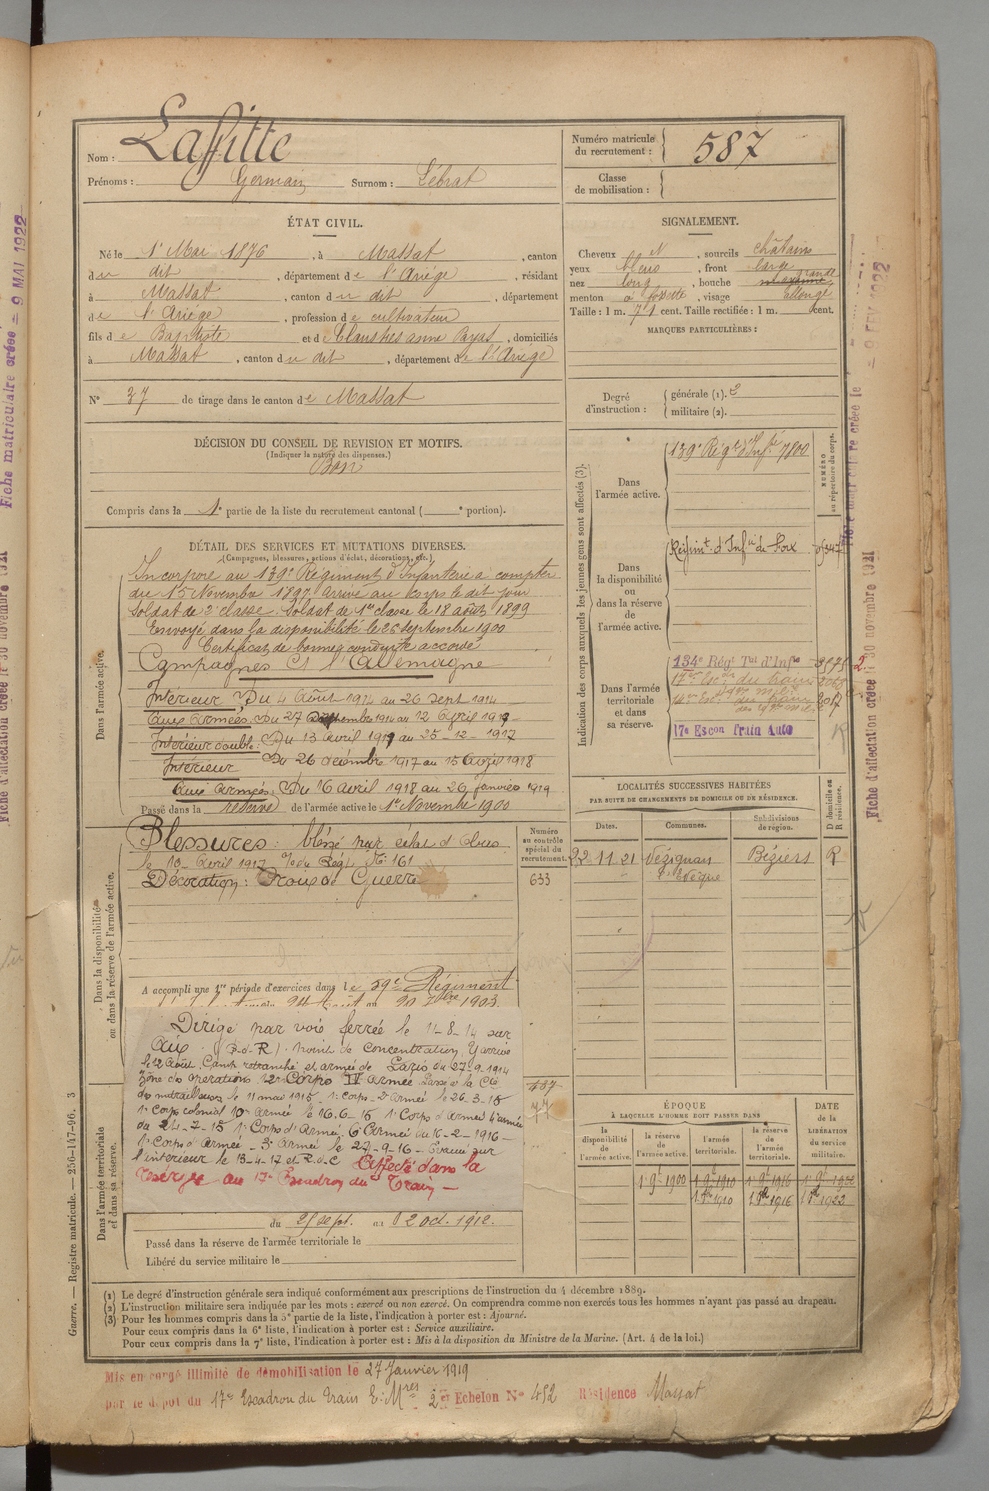 Nom : Lafitte
Prénoms : Germain Surnom : Lébrat
Numéro matricule du recrutement : 587
Classe de mobilisation :
ÉTAT CIVIL.
Né le 1er Mai 1876, à Massat, canton
du dit, département de l'Ariège, résidant
à Massat, canton du dit, département
de l'Ariège, profession de cultivateur
fils de Baptiste et de Claustres anne Payas, domiciliés
à Massat, canton du dit, département de l'Ariège
N° 37 de tirage dans le canton de Massat
SIGNALEMENT.
Cheveux N, sourcils châtains
yeux bleus, front large
nez long, bouche moyenne grande
menton à fossette, visage allongé
Taille : 1 m. 71 cent. Taille rectifiée : 1 m. cent.
MARQUES PARTICULIÈRES :
Degré d'instruction : générale (1). 2
militaire (2).
DÉCISION DU CONSEIL DE REVISION ET MOTIFS.
(Indiquer la nature des dispenses.)
Bon
Compris dans la 1e partie de la liste du recrutement cantonal ( e portion).
DÉTAIL DES SERVICES ET MUTATIONS DIVERSES.
(Campagnes, blessures, actions d'éclat, décorations, etc.)
Dans l'armée active.
Incorporé au 139e Régiment d'Infanterie à compter
du 15 Novembre 1897, arrivé au corps le dit jour
soldat de 2e classe. Soldat de 1re classe le 18 août 1899
Envoyé dans la disponibilité le 26 septembre 1900
Certificat de bonne conduite accordé
Campagnes Ct l'Allemagne
Intérieur, Du 4 Août 1914 au 26 sept 1914
Aux Armées. Du 27 septembre 1914 au 12 Avril 1917
Intérieur double : Du 13 Avril 1917 au 25-12-1917
Intérieur Du 26 décembre 1917 au 15 Avril 1918
Aux Armées : Du 16 Avril 1918 au 26 janvier 1919
Passé dans la réserve de l'armée active le 1er Novembre 1900
Indication des corps auxquels les jeunes gens sont affectés (3).
NUMÉRO au répertoire du corps.
Dans l'armée active.
139e Régt d'Infie 7800
Dans la disponibilité ou dans la réserve de l'armée active.
Régimt. d'Infie de Foix
Dans l'armée territoriale et dans sa réserve.
134e Régt Tal d'Infie
17e Escon Train Auto
Dans la disponibilité ou dans la réserve de l'armée active.
Blessures : blessé par éclat d'obus
le 10 Avril 1917
Décoration : Croix de Guerre
Numéro au contrôle spécial du recrutement.
633
A accompli une 1re période d'exercices dans le 59e Régiment
LOCALITÉS SUCCESSIVES HABITÉES
PAR SUITE DE CHANGEMENTS DE DOMICILE OU DE RÉSIDENCE.
Dates. Communes. Subdivisions de région. D domicile ou R résidence.
22.11.21 Lézignan l'Evêque Béziers R
Dirigé par voie ferrée le 11-8-14 sur
Aix (B-d-R) point de concentration. Y arrivé
le 12 Août. Camp retranché et armée de Paris du 27-9-1914
Zône des opérations 12e Corps IV Armée Passé à la Cie
de mitrailleurs le 11 mai 1915, 1er Corps-2e Armée le 26-3-15
1er Corps colonial 10e Armée le 16-6-15 1er Corps d'Armée 4e armée
du 24-7-15 1er Corps d'Armée 6e Armée du 16-2-1916-
1er Corps d'Armée - 3e Armée le 27-9-16 - Evacué sur
l'intérieur le 13-4-17 Affecté dans la
réserve au 17e Escadron du Train -
Dans l'armée territoriale et dans sa réserve.
du 25 sept. au 2 oct. 1912.
Passé dans la réserve de l'armée territoriale le
Libéré du service militaire le
ÉPOQUE
À LAQUELLE L'HOMME DOIT PASSER DANS
la disponibilité de l'armée active. la réserve de l'armée active. l'armée territoriale. la réserve de l'armée territoriale.
DATE de la LIBÉRATION du service militaire.
1er 9e 1900 1er 9e 1910 1er 9e 1916 1er 9e 1922
1910 1916 1922
(1) Le degré d'instruction générale sera indiqué conformément aux prescriptions de l'instruction du 4 décembre 1889.
(2) L'instruction militaire sera indiquée par les mots : exercé ou non exercé. On comprendra comme non exercés tous les hommes n'ayant pas passé au drapeau.
(3) Pour les hommes compris dans la 5e partie de la liste, l'indication à porter est : Ajourné.
Pour ceux compris dans la 6e liste, l'indication à porter est : Service auxiliaire.
Pour ceux compris dans la 7e liste, l'indication à porter est : Mis à la disposition du Ministre de la Marine. (Art. 4 de la loi.)
Guerre. — Registre matricule. — 256-147-96. 3
Mis en congé illimité de démobilisation le 27 Janvier 1919
par le dépôt du 17e Escadron du Train 2e Echelon N° 452 Résidence Massat
Fiche matriculaire créée = 9 MAI 1922
Fiche d'affectation créée le 30 novembre 1921